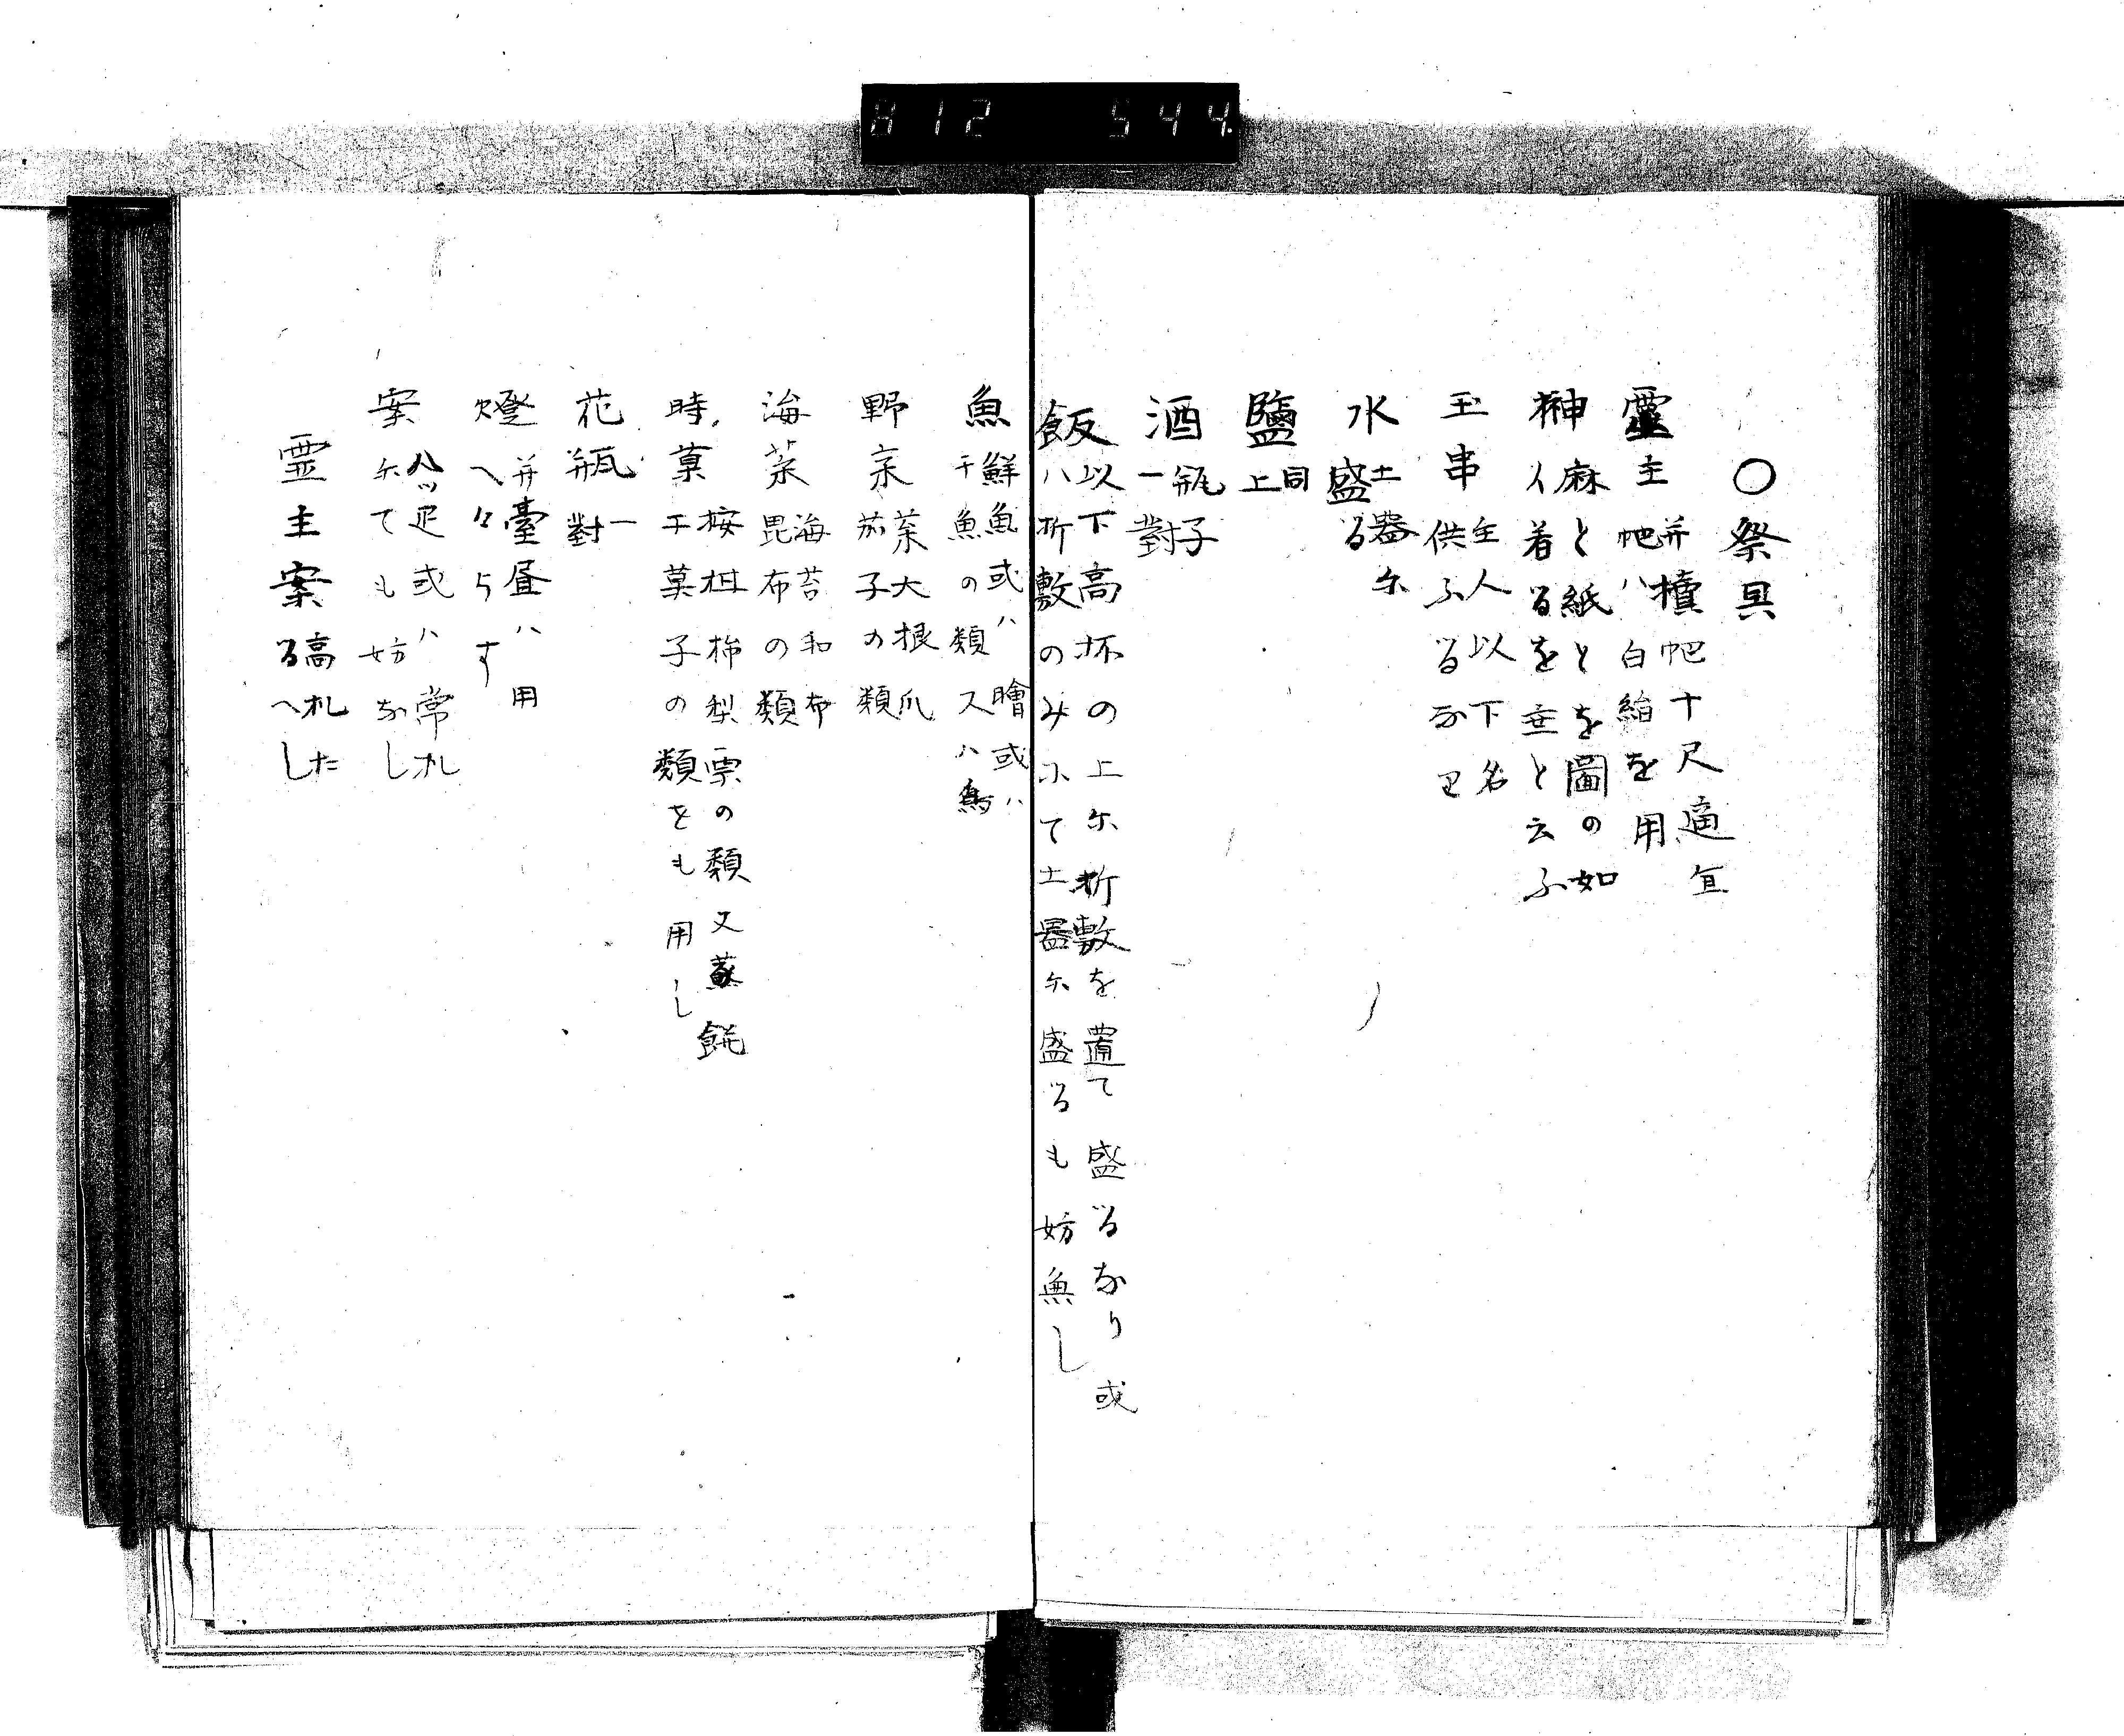 812 544
○祭具
靈主 并櫝帊十尺適宜
帊ハ白絁を用
榊 麻と紙とを圖の如
く着るを垂と云ふ
玉串 主人以下名
供ふるなり
水 土器尓
盛る
鹽 同
上
酒 瓶子
一對
飯 以下高坏の上尓折敷を置て盛るなり或
ハ折敷のみ尓て土器尓盛るも妨無し
魚 鮮魚或ハ膾或ハ
干魚の類又ハ鳥
野菜 菜大根爪
茄子の類
海菜 海苔和布
毘布の類
時菓 桉柑柿梨栗の類又蒸餅
干菓子の類をも用し
花瓶 一
對
燈 并臺昼ハ用
へからす
案 八ッ足或ハ常札
尓ても妨なし
霊主案 高札た
るへし